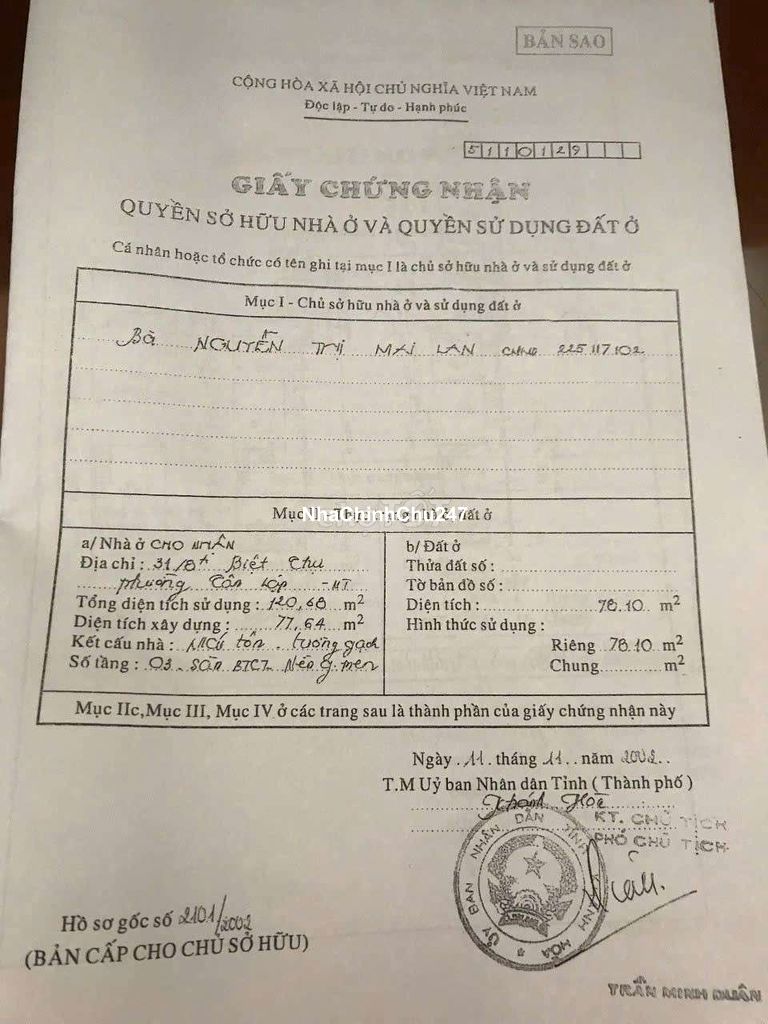 BẢN SAO
CỘNG HÒA XÃ HỘI CHỦ NGHĨA VIỆT NAM
Độc lập - Tự do - Hạnh phúc
5110129
GIẤY CHỨNG NHẬN
QUYỀN SỞ HỮU NHÀ Ở VÀ QUYỀN SỬ DỤNG ĐẤT Ở
Cá nhân hoặc tổ chức có tên ghi tại mục I là chủ sở hữu nhà ở và sử dụng đất ở
Mục I - Chủ sở hữu nhà ở và sử dụng đất ở
Bà NGUYỄN THỊ MAI LAN CMND 225117102
Mục II nhà ở, đất ở
NhaChinhChu247
a/ Nhà ở CHO NHẬN
Địa chỉ : 31/8 Biệt Thự
phường Tân Lập - NT
Tổng diện tích sử dụng : 120,68 m²
Diện tích xây dựng : 77,64 m²
Kết cấu nhà : Mái tôn. tường gạch
Số tầng : 03. Sàn BTCT. Nền g. men
b/ Đất ở
Thửa đất số :
Tờ bản đồ số :
Diện tích : 78.10 m²
Hình thức sử dụng :
Riêng 78.10 m²
Chung m²
Mục IIc, Mục III, Mục IV ở các trang sau là thành phần của giấy chứng nhận này
Ngày 11 tháng 11 năm 2002
T.M Uỷ ban Nhân dân Tỉnh ( Thành phố )
Khánh Hòa
KT. CHỦ TỊCH
PHÓ CHỦ TỊCH
ỦY BAN NHÂN DÂN TỈNH KHÁNH HÒA
Hồ sơ gốc số 2101/2002
(BẢN CẤP CHO CHỦ SỞ HỮU)
TRẦN MINH DUÂN